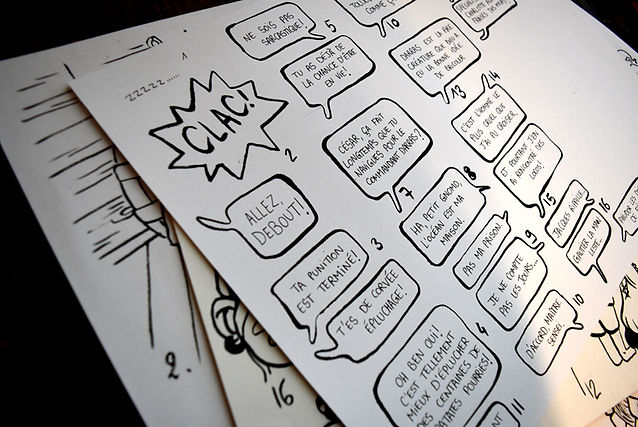 zzzzz.....
1
CLAC!
2
ALLEZ,
DEBOUT!
3
TA PUNITION
EST TERMINÉ!
T'ES DE CORVÉE
ÉPLUCHAGE!
4
OH BEN OUI!
C'EST TELLEMENT
MIEUX D'ÉPLUCHER
DES CENTAINES DE
PATATES POURRIES!
NE SOIS PAS
SARCASTIQUE!
5
TU AS DÉJÀ DE
LA CHANCE D'ÊTRE
EN VIE!
CÉSAR, ÇA FAIT
LONGTEMPS QUE TU
NAVIGUES POUR LE
COMMANDANT DARRAS?
7
8
HA PETIT GNOMO,
L'OCÉAN EST MA
MAISON.
PAS MA PRISON.
9
JE NE COMPTE
PAS LES JOURS...
10
D'ACCORD, MAÎTRE
SENSEI.
11
COMME ÇA?
10
DARRAS EST LA PIRE
CRÉATURE QUE DIEU A
EU LA BONNE IDÉE
DE
13
14
C'EST L'HOMME LE
PLUS CRUEL QUE
J'AI DU CROISER.
ET POURTANT J'EN
AI RENCONTRÉ DES
15
JACQUES
16
LA MAIN
LESTE...
12
2.
16